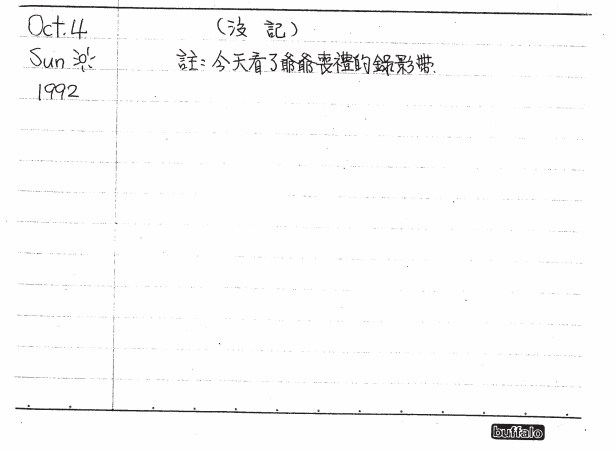 Oct. 4
Sun
1992
（沒 記）
註：今天看了爺爺喪禮的錄影帶.
buffalo